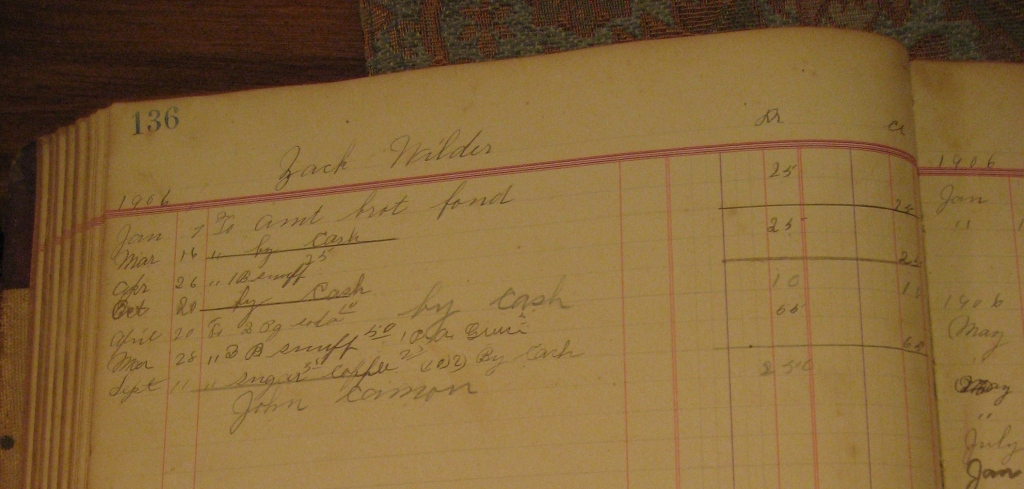 136
Zack Wilder Dr Cr
1906
Jan 7 To amt brot ford 25
Mar 16 " by Cash 25
Apr 26 " 1 B snuff 25 25
Oct 20 by Cash 25
April 20 To 2 soda 10 by Cash 10 10
Mar 28 " 2 B snuff 50 60
Sept 11 " sugar Coffee By Cash 60
John Cannon 2 50
1906
Jan
"
1906
May
"
May
"
July
Jan